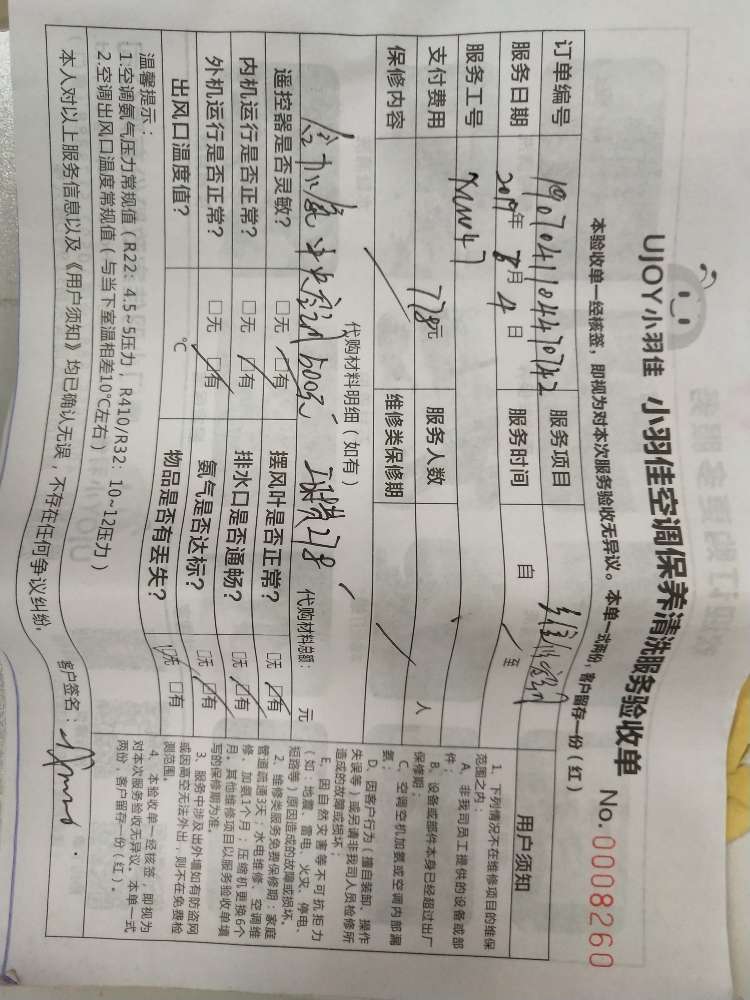 UJOY小羽佳 小羽佳空调保养清洗服务验收单 No.0008260
本验收单一经核签，即视为对本次服务验收无异议。本单一式两份，客户留存一份（红）
订单编号 服务项目
服务日期 2019年 8月 4日 服务时间 自 至
服务工号
支付费用 778元 服务人数 人
保修内容 维修类保修期
代购材料明细（如有）
代购材料总额： 元
遥控器是否灵敏？ □无 □有 摆风叶是否正常？ □无 □有
内机运行是否正常？ □无 □有 排水口是否通畅？ □无 □有
外机运行是否正常？ □无 □有 氨气是否达标？ □无 □有
出风口温度值？ ℃ 物品是否有丢失？ □无 □有
温馨提示：
1.空调氨气压力常规值（R22：4.5~5压力，R410/R32：10~12压力）
2.空调出风口温度常规值（与当下室温相差10℃左右）
本人对以上服务信息以及《用户须知》均已确认无误，不存在任何争议纠纷，
客户签名：
用户须知
1、下列情况不在维修项目的维保
范围之内：
A、非我司员工提供的设备或部
件；
B、设备或部件本身已经超过出厂
保修期；
C、空调空机加氨或空调内部漏
氨；
D、因客户行为（擅自装卸、操作
失误等）或另请非我司人员检修所
造成的故障或损坏；
E、因自然灾害等不可抗拒力
（如：地震、雷电、火灾、停电、
短路等）原因造成的故障或损坏。
2、维修类服务免费保修期：家庭
管道疏通3天；水电维修、空调维
修、加氨1个月；压缩机更换6个
月。其他维修项目以服务验收单填
写的保修期为准。
3、服务中涉及出外墙如有防盗网
或因高空无法外出，则不在免费检
测范围。
4、本验收单一经核签，即视为
对本次服务验收无异议。本单一式
两份，客户留存一份（红）。